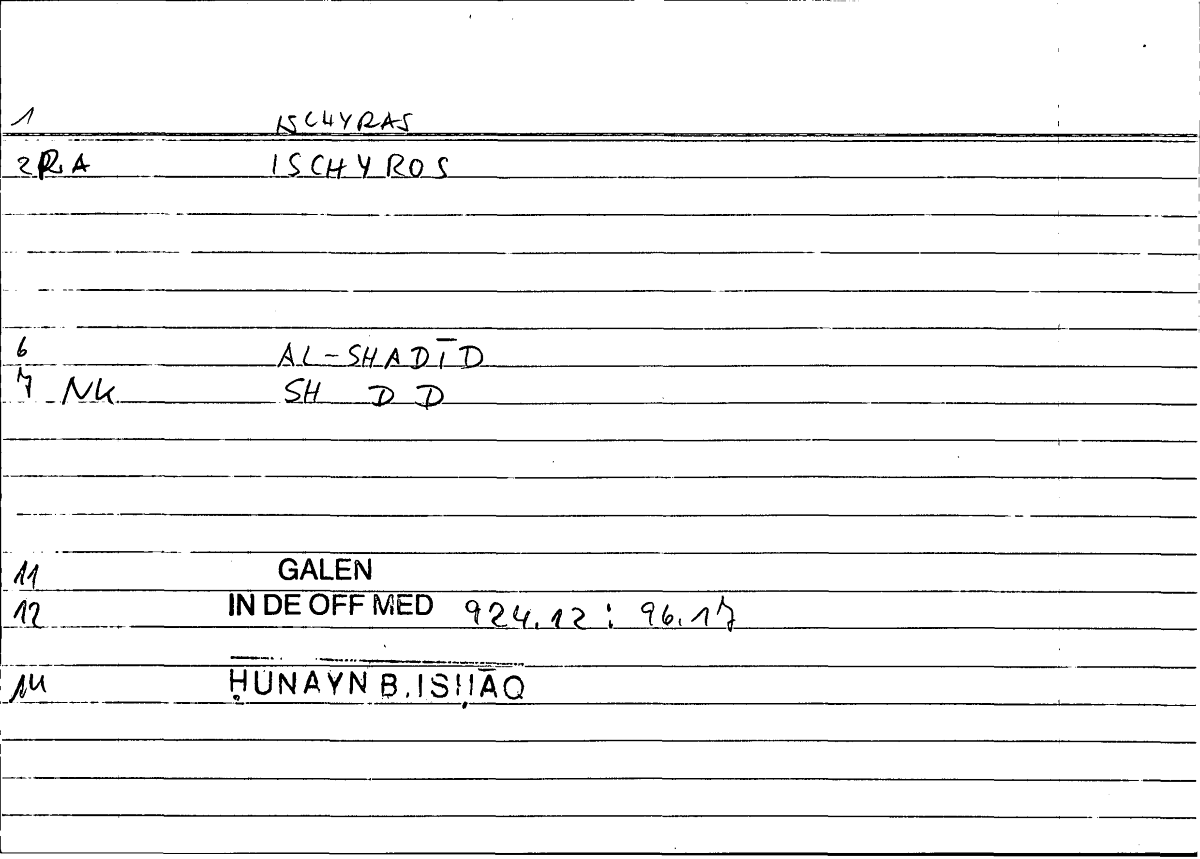 1 ISCHYRAS
2 RA ISCHYROS
6 AL-SHADĪD
7 NK SH D D
11 GALEN
12 IN DE OFF MED 924.12 : 96.17
14 ḤUNAYN B. ISḤĀQ